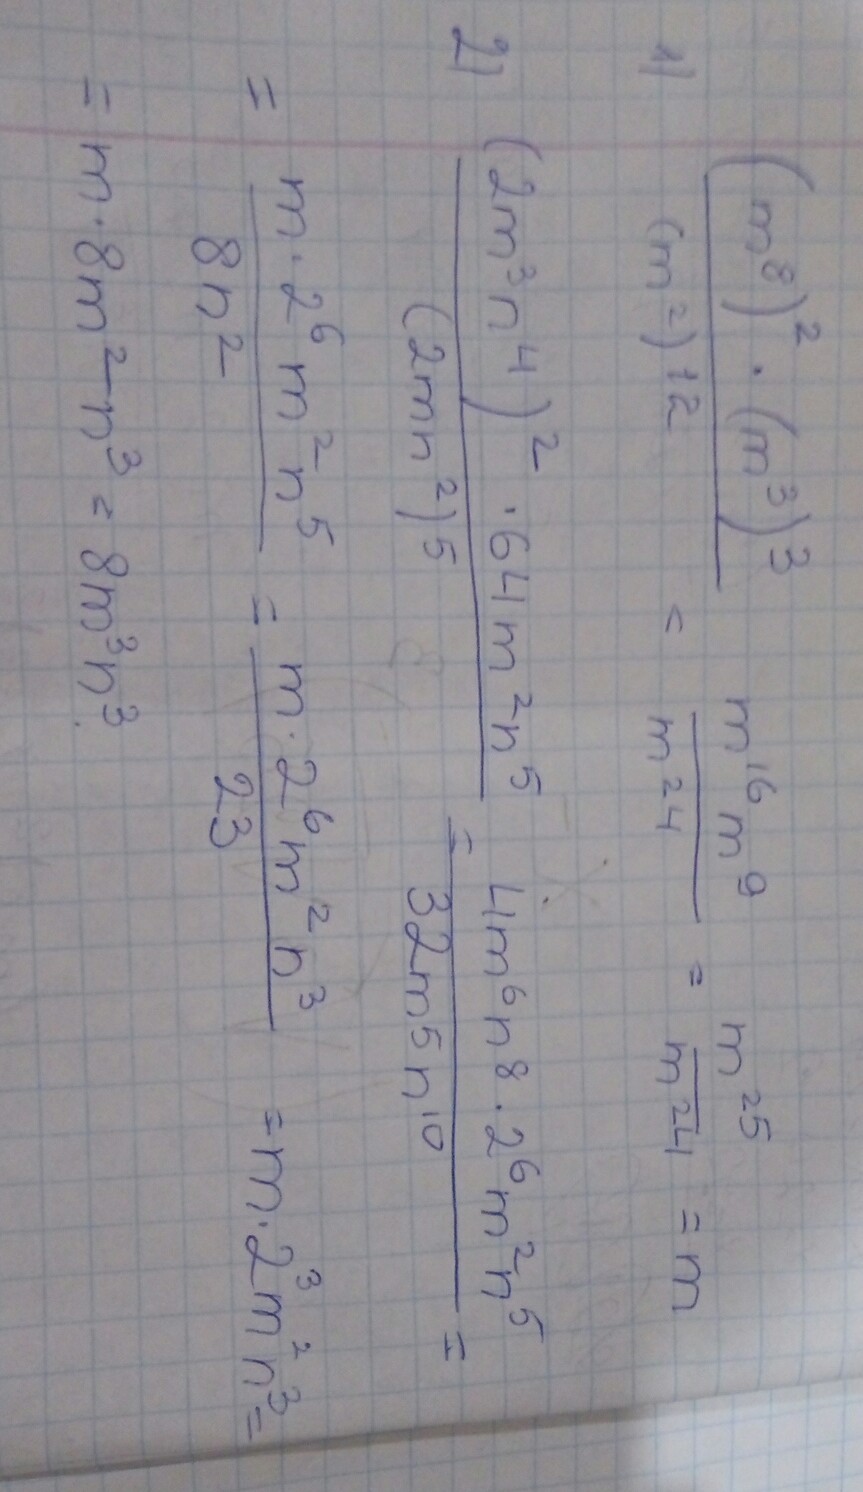 1) (m⁸)² · (m³)³ / (m²)¹² = m¹⁶m⁹ / m²⁴ = m²⁵ / m²⁴ = m
2) (2m³n⁴)² · 64m²n⁵ / (2mn²)⁵ = 4m⁶n⁸ · 2⁶m²n⁵ / 32m⁵n¹⁰ =
= m · 2⁶m²n⁵ / 8n² = m · 2⁶m²n³ / 2³ = m · 2³m²n³ =
= m · 8m²n³ = 8m³n³.